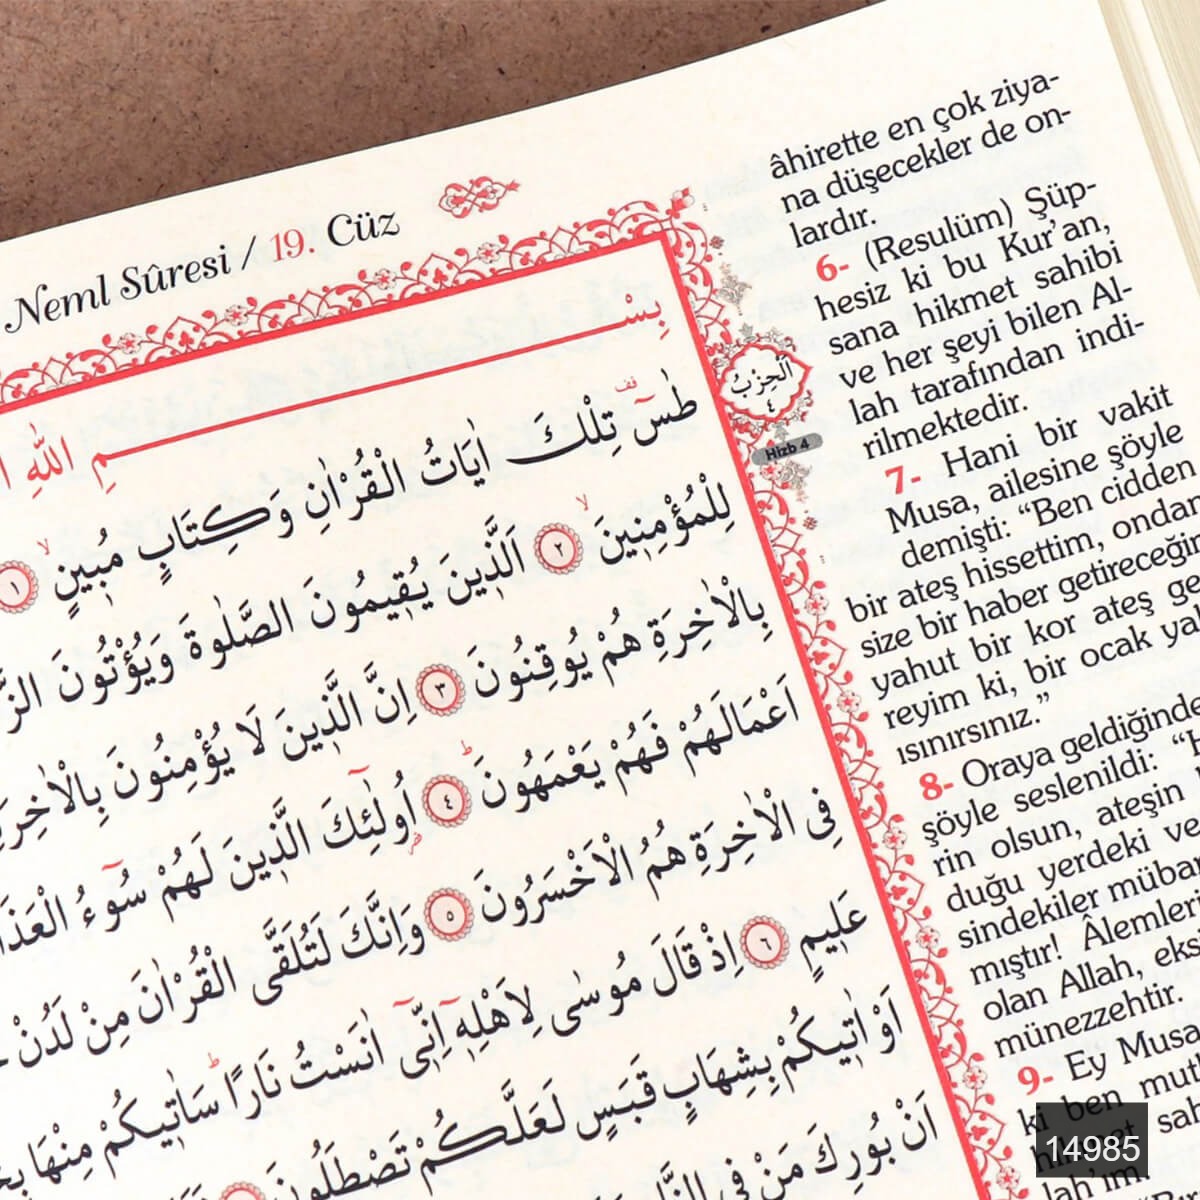 Neml Sûresi / 19. Cüz
بِسْمِ اللّٰهِ
طٰسٓ تِلْكَ اٰيَاتُ الْقُرْاٰنِ وَكِتَابٍ مُب۪ينٍۙ ﴿١﴾
لِلْمُؤْمِن۪ينَۙ ﴿٢﴾ اَلَّذ۪ينَ يُق۪يمُونَ الصَّلٰوةَ وَيُؤْتُونَ
بِالْاٰخِرَةِ هُمْ يُوقِنُونَ ﴿٣﴾ اِنَّ الَّذ۪ينَ لَا يُؤْمِنُونَ بِالْاٰخِرَةِ
اَعْمَالَهُمْ فَهُمْ يَعْمَهُونَۜ ﴿٤﴾ اُو۬لٰٓئِكَ الَّذ۪ينَ لَهُمْ سُٓوءُ
فِي الْاٰخِرَةِ هُمُ الْاَخْسَرُونَ ﴿٥﴾ وَاِنَّكَ لَتُلَقَّى الْقُرْاٰنَ مِنْ لَدُنْ
عَل۪يمٍ ﴿٦﴾ اِذْ قَالَ مُوسٰى لِاَهْلِه۪ٓ اِنّ۪ٓي اٰنَسْتُ نَارًاۜ سَاٰت۪يكُمْ مِنْهَا
اَوْ اٰت۪يكُمْ بِشِهَابٍ قَبَسٍ لَعَلَّكُمْ تَصْطَلُونَ
اَنْ بُورِكَ مَنْ فِي
اَلْحِزْبُ
٤
Hizb 4
âhirette en çok ziya-
na düşecekler de on-
lardır.
6- (Resulüm) Şüp-
hesiz ki bu Kur’an,
sana hikmet sahibi
ve her şeyi bilen Al-
lah tarafından indi-
rilmektedir.
7- Hani bir vakit
Musa, ailesine şöyle
demişti: “Ben cidden
bir ateş hissettim, ondan
size bir haber getireceğim
yahut bir kor ateş ge
reyim ki, bir ocak ya
ısınırsınız.”
8- Oraya geldiğinde
şöyle seslenildi:
rin olsun, ateşin
duğu yerdeki ve
sindekiler mübar
mıştır! Âlemleri
olan Allah, eksi
münezzehtir.
9- Ey Musa
ki ben mut
hikmet sah
lah’ım.
14985